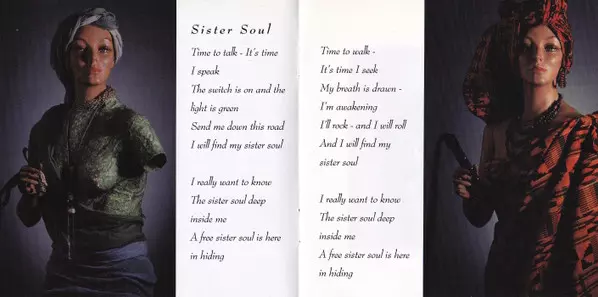 Sister Soul
Time to talk - It's time
I speak
The switch is on and the
light is green
Send me down this road
I will find my sister soul
I really want to know
The sister soul deep
inside me
A free sister soul is here
in hiding
Time to walk -
It's time I seek
My breath is drawn -
I'm awakening
I'll rock - and I will roll
And I will find my
sister soul
I really want to know
The sister soul deep
inside me
A free sister soul is here
in hiding